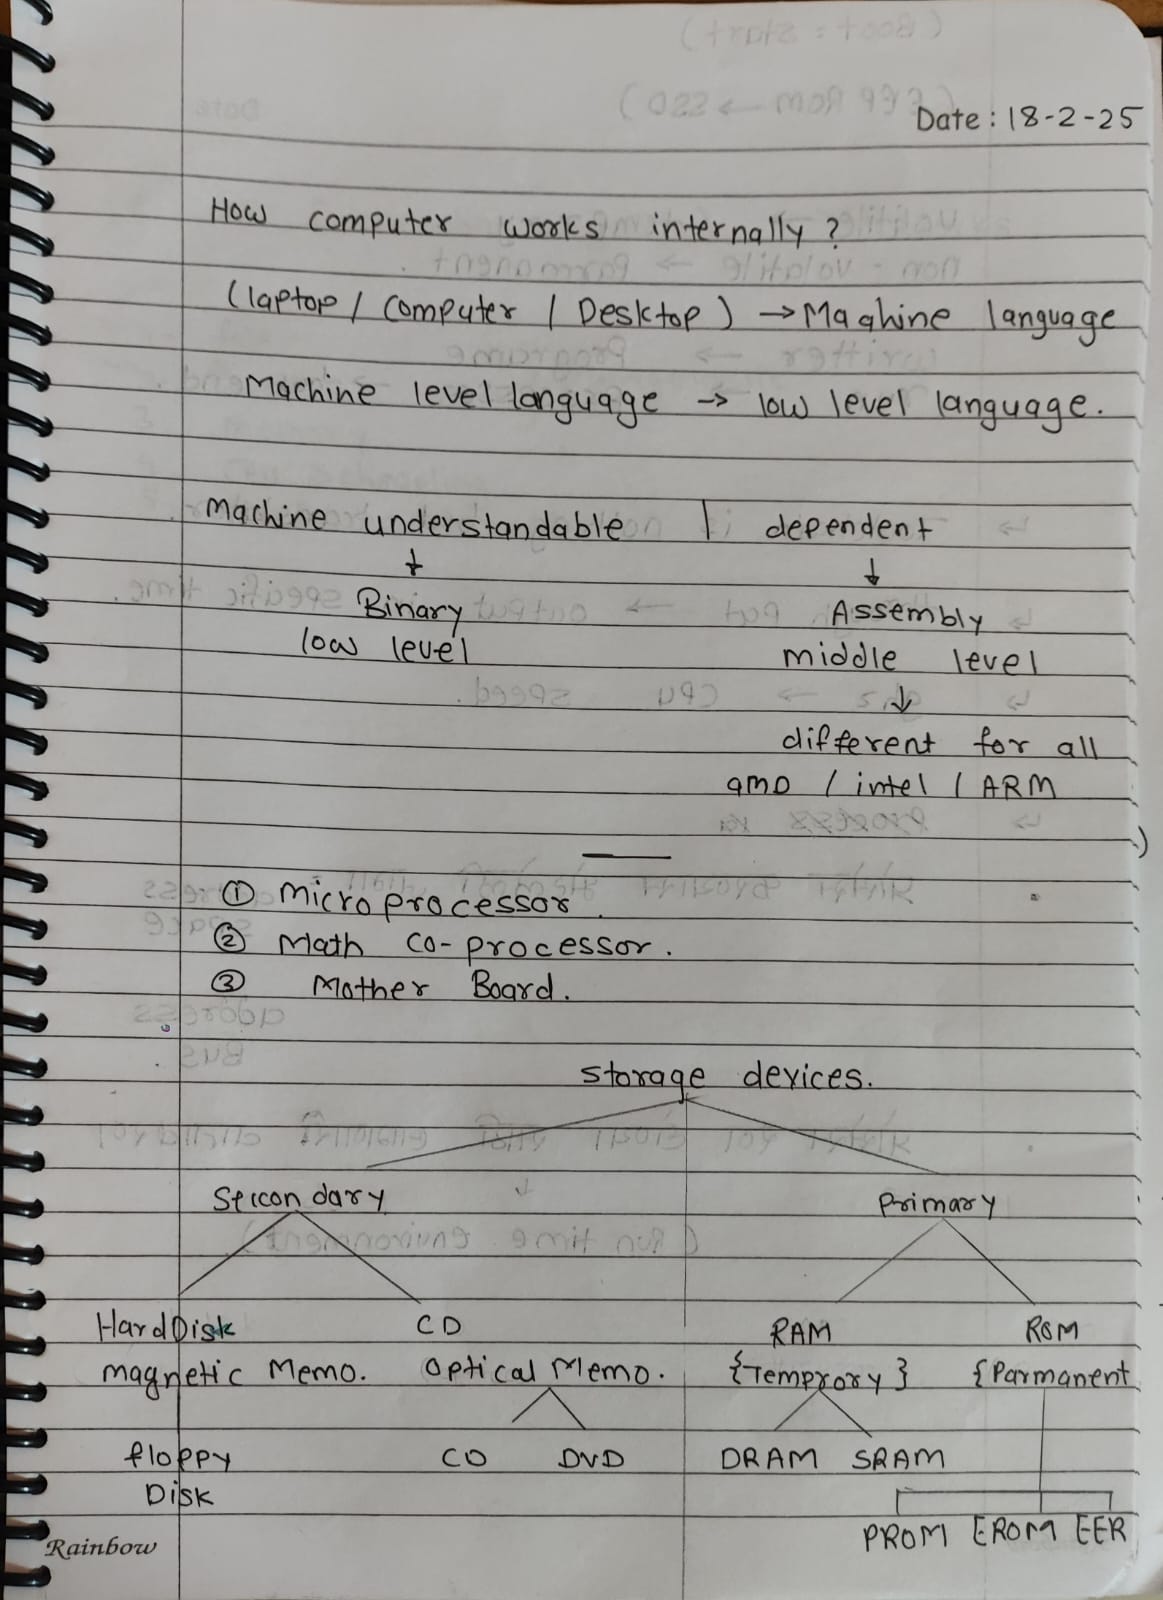 Date : 18-2-25
How computer works internally ?
(laptop / Computer / Desktop ) → Maghine language
Machine level language → low level language.
Machine understandable | dependent
↓ ↓
Binary Assembly
low level middle level
↓
different for all
AMD / intel / ARM
① Microprocessor.
② Math co-processor.
③ Mother Board.
Storage devices.
Secondary Primary
Hard Disk CD RAM ROM
magnetic Memo. Optical Memo. {Temprory } {Parmanent
floppy CD DVD DRAM SRAM
Disk
PROM EROM EER
Rainbow